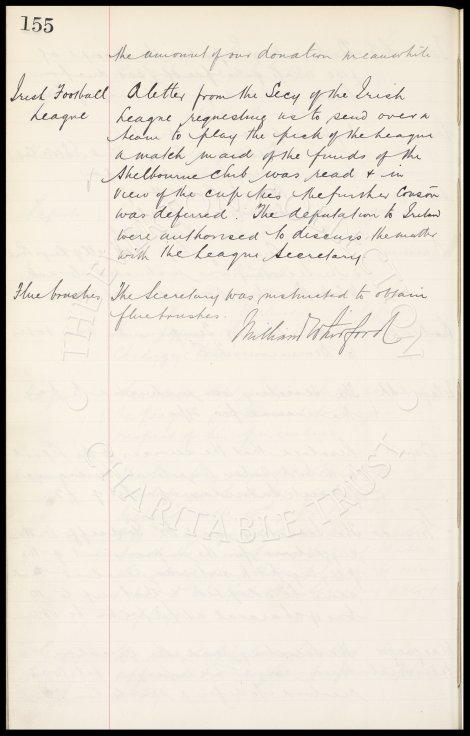 155
the amount of our donation meanwhile
Irish Football
League
A letter from the Secy of the Irish
League requesting us to send over a
team to play the pick of the League
a match in aid of the funds of the
Shelbourne Club was read & in
view of the cup ties the further conson
was deferred. The deputation to Ireland
were authorised to discuss the matter
with the League Secretary
Flue brushes
The Secretary was instructed to obtain
flue brushes.
CHARITABLE TRUST